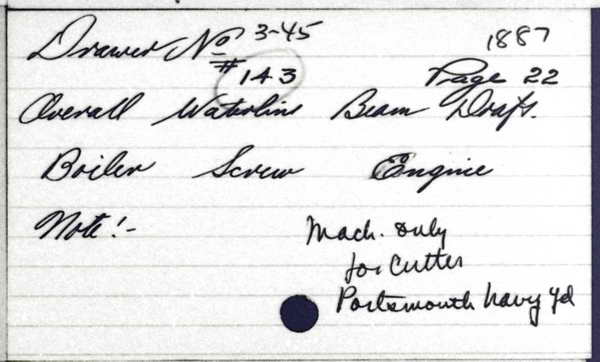 Drawer No 3-45 1887
#143 Page 22
Overall Waterline Beam Draft.
Boiler Screw Engine
Note!-
Mach. only
for Cutter
Portsmouth Navy Yd